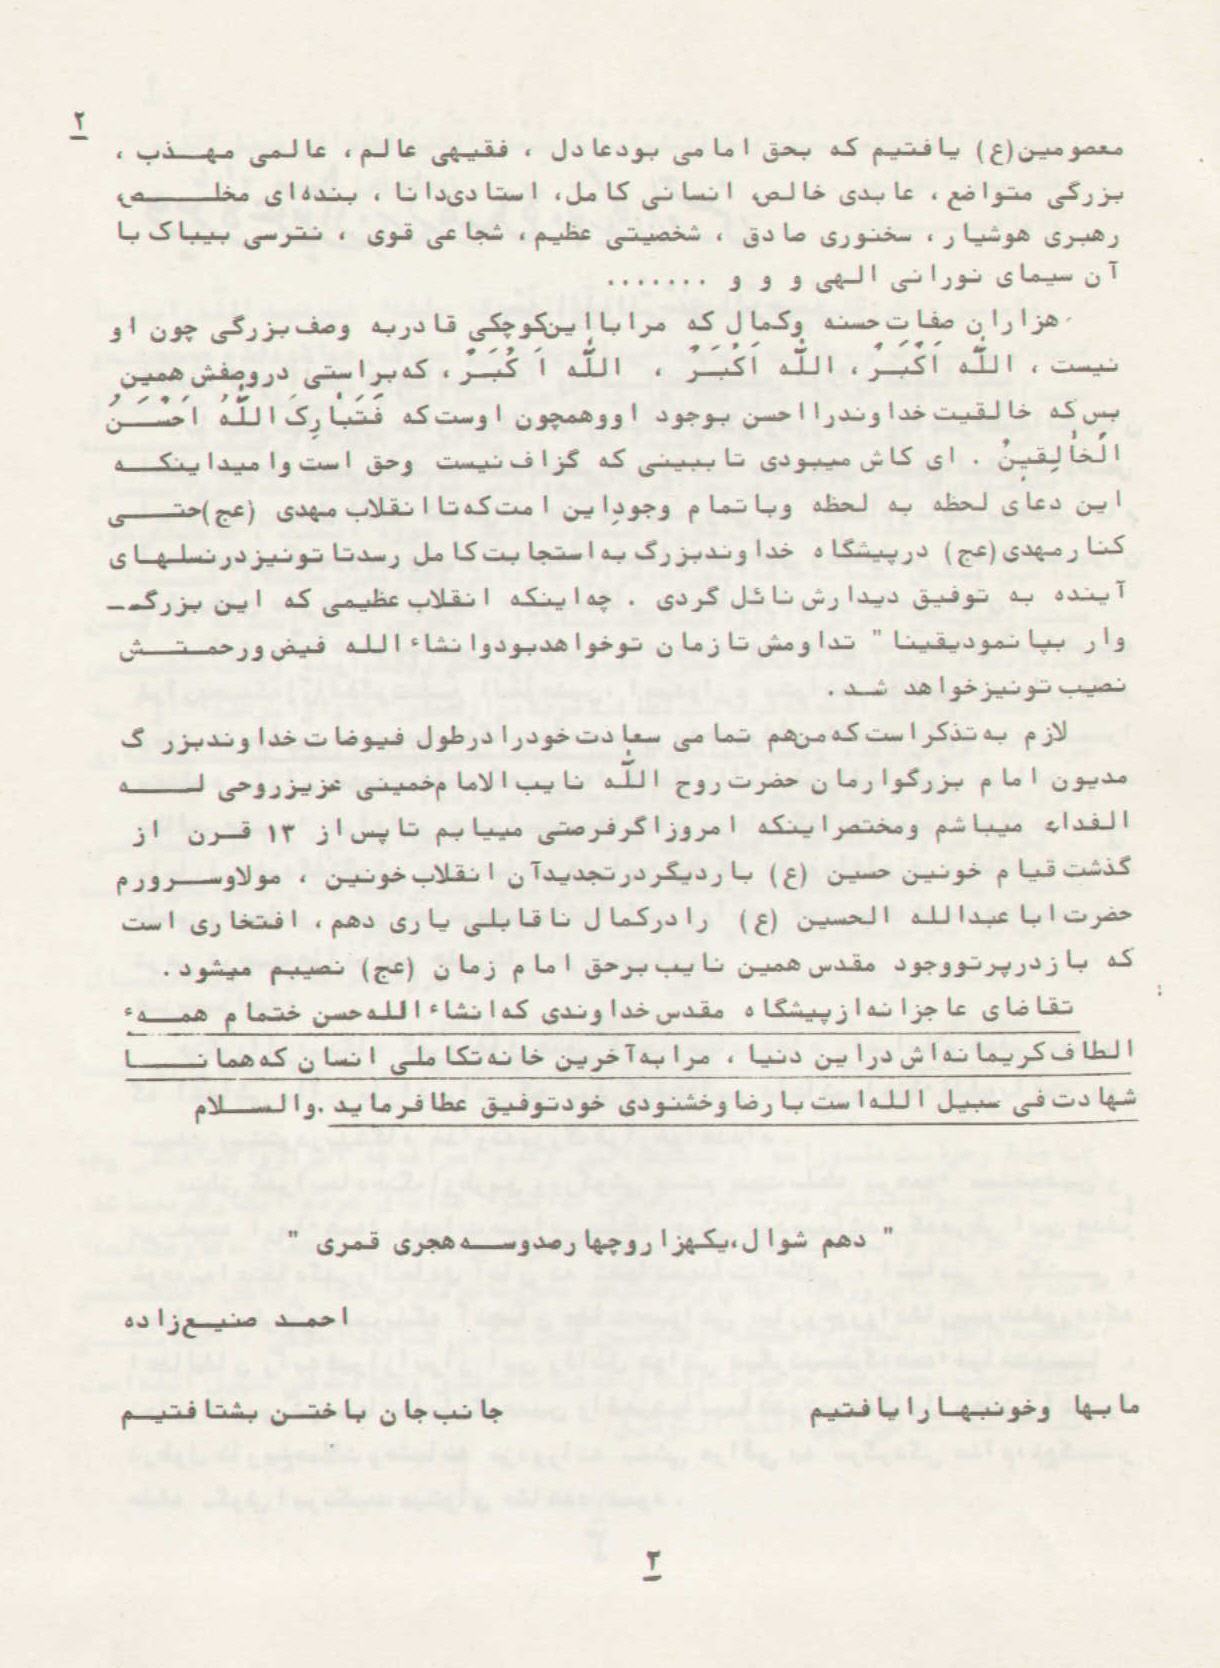 ۲
معصومین(ع) یافتیم که بحق امامی بودعادل ، فقیهی عالم، عالمی مهـذب ،
بزرگی متواضع، عابدی خالص، انسانی کامل، استادی‌دانا ، بنده‌ای مخلـــص،
رهبری هوشیار، سخنوری صادق ، شخصیتی عظیم، شجاعی قوی ، نترسی بیباک با
آن سیمای نورانی الهی و و و .......
هزاران صفات‌حسنه وکمال که مرابااین‌کوچکی قادربه وصف‌بزرگی چون او
نیست ، اللّه اَکْبَـرُ، اللّه اَکْبَـرُ ، اللّه اَکْبَـرُ، که‌براستی دروصفش همین
بس‌که خالقیت خداوندرااحسن بوجود اووهمچون اوست‌که فَتَبارِکَ‌اللّهُ اَحْسَــنُ
الْخالِقینْ . ای کاش میبودی تاببینی که گزاف‌نیست وحق است‌وامیداینکــه
این دعای لحظه به لحظه وباتمام وجودِاین امت‌که‌تاانقلاب‌مهدی (عج)حتـــی
کنارمهدی(عج) درپیشگاه خداوندبزرگ به‌استجابت‌کامل رسدتاتونیزدرنسلهـای
آینده به توفیق دیدارش‌نائل گردی . چه‌اینکه انقلاب‌عظیمی که این بزرگــ
وار بپانمودیقینا" تداومش‌تازمان توخواهدبودوانشاءالله فیض‌ورحمــتــش
نصیب‌تونیزخواهد شـد.
لازم به‌تذکراست‌که‌من‌هم تمامی سعادت‌خودرادرطول فیوضات‌خداوندبزرگ
مدیون امام بزرگوارمان حضرت‌روح اللّه نایب‌الامام‌خمینی عزیزروحی لــه
الفداء میباشم ومختصراینکه امروزاگرفرصتی مییابم تاپس‌از ۱۳ قــرن از
گذشت‌قیام خونین حسین (ع) باردیگردرتجدیدآن انقلاب‌خونین ، مولاوســرورم
حضرت‌اباعبدالله الحسین (ع) رادرکمال ناقابلی یاری دهم، افتخاری است
که بازدرپرتووجود مقدس همین نایب‌برحق امام زمان (عج) نصیبم میشود.
تقاضای عاجزانه‌ازپیشگاه مقدس‌خداوندی که‌انشاءالله‌حسن ختمام همــهء
الطاف‌کریمانه‌اش‌دراین دنیا ، مرابه‌آخرین خانه‌تکاملی انسان که‌همانــا
شهادت‌فی سبیل الله‌است‌بارضاوخشنودی خودتوفیق عطافرماید.والســلام
" دهم شوال،یکهزاروچهارصدوســه‌هجری قمری "
احمـد صنیـع‌زاده
مابها وخونبهارایافتیم جانب‌جان باختـن بشتافتیـم
۲